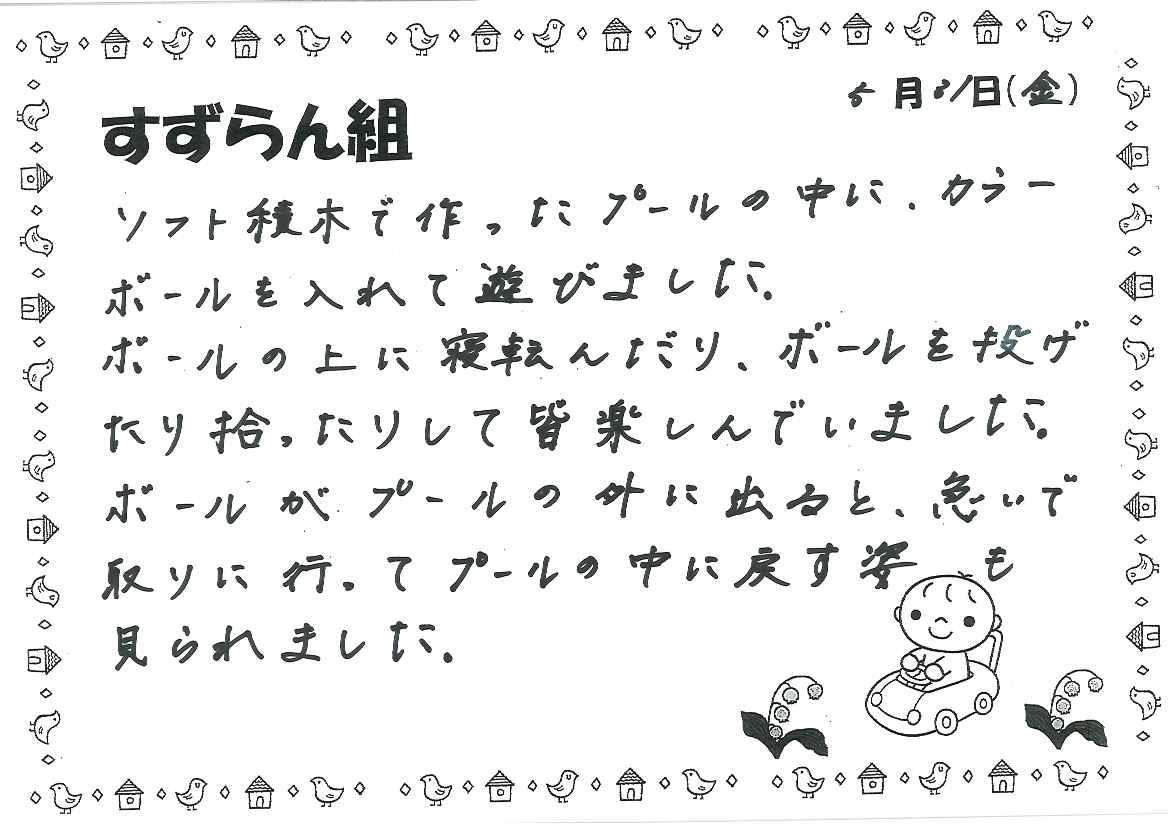 5月31日(金)
すずらん組
ソフト積木で作ったプールの中に、カラー
ボールを入れて遊びました。
ボールの上に寝転んだり、ボールを投げ
たり拾ったりして皆楽しんでいました。
ボールがプールの外に出ると、急いで
取りに行ってプールの中に戻す姿も
見られました。